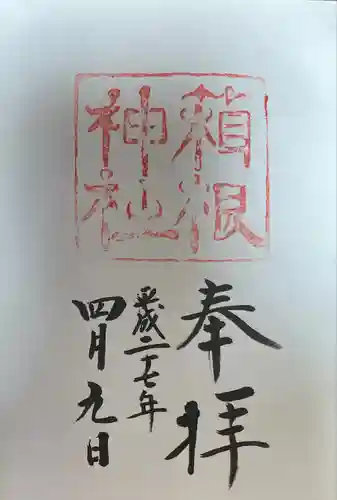 箱根
神社
奉拝
平成二十七年
四月九日